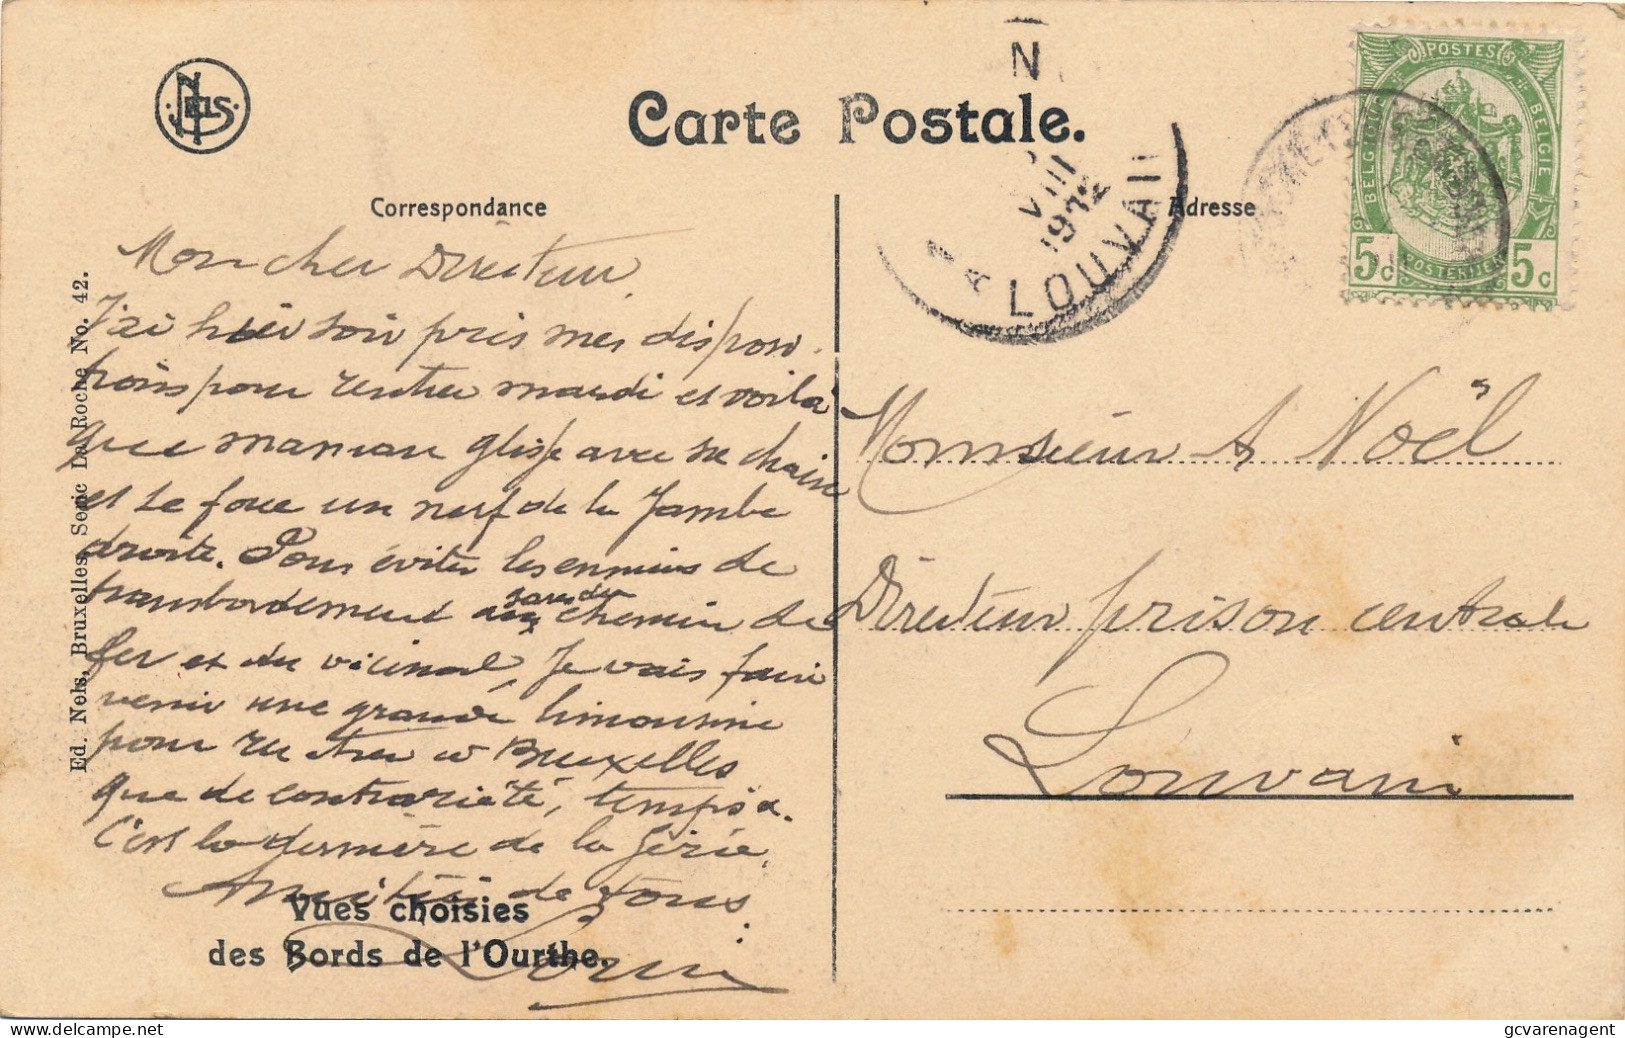 NELS
Carte Postale.
Correspondance
Adresse
N
VIII
1912
LOUVAIN
POSTES
BELGIQUE
BELGIE
POSTERIJEN
5c 5c
Ed. Nels, Bruxelles Serie La Roche No. 42.
Mon cher Directeur
J'ai hier soir pris mes disposi-
tions pour rentrer mardi et voilà
que maman glisse avec sa chaise
et se foule un nerf de la jambe
droite. Pour éviter les ennuis de
transbordement chemin de
fer et du vicinal, je vais faire
venir une grande limousine
pour rentrer à Bruxelles
que de contrariété, temps &.
C'est la dernière de la série.
Amitiés de tous
Vues choisies
des Bords de l'Ourthe.
Monsieur A Noël
Directeur prison centrale
Louvain
gcvarenagent